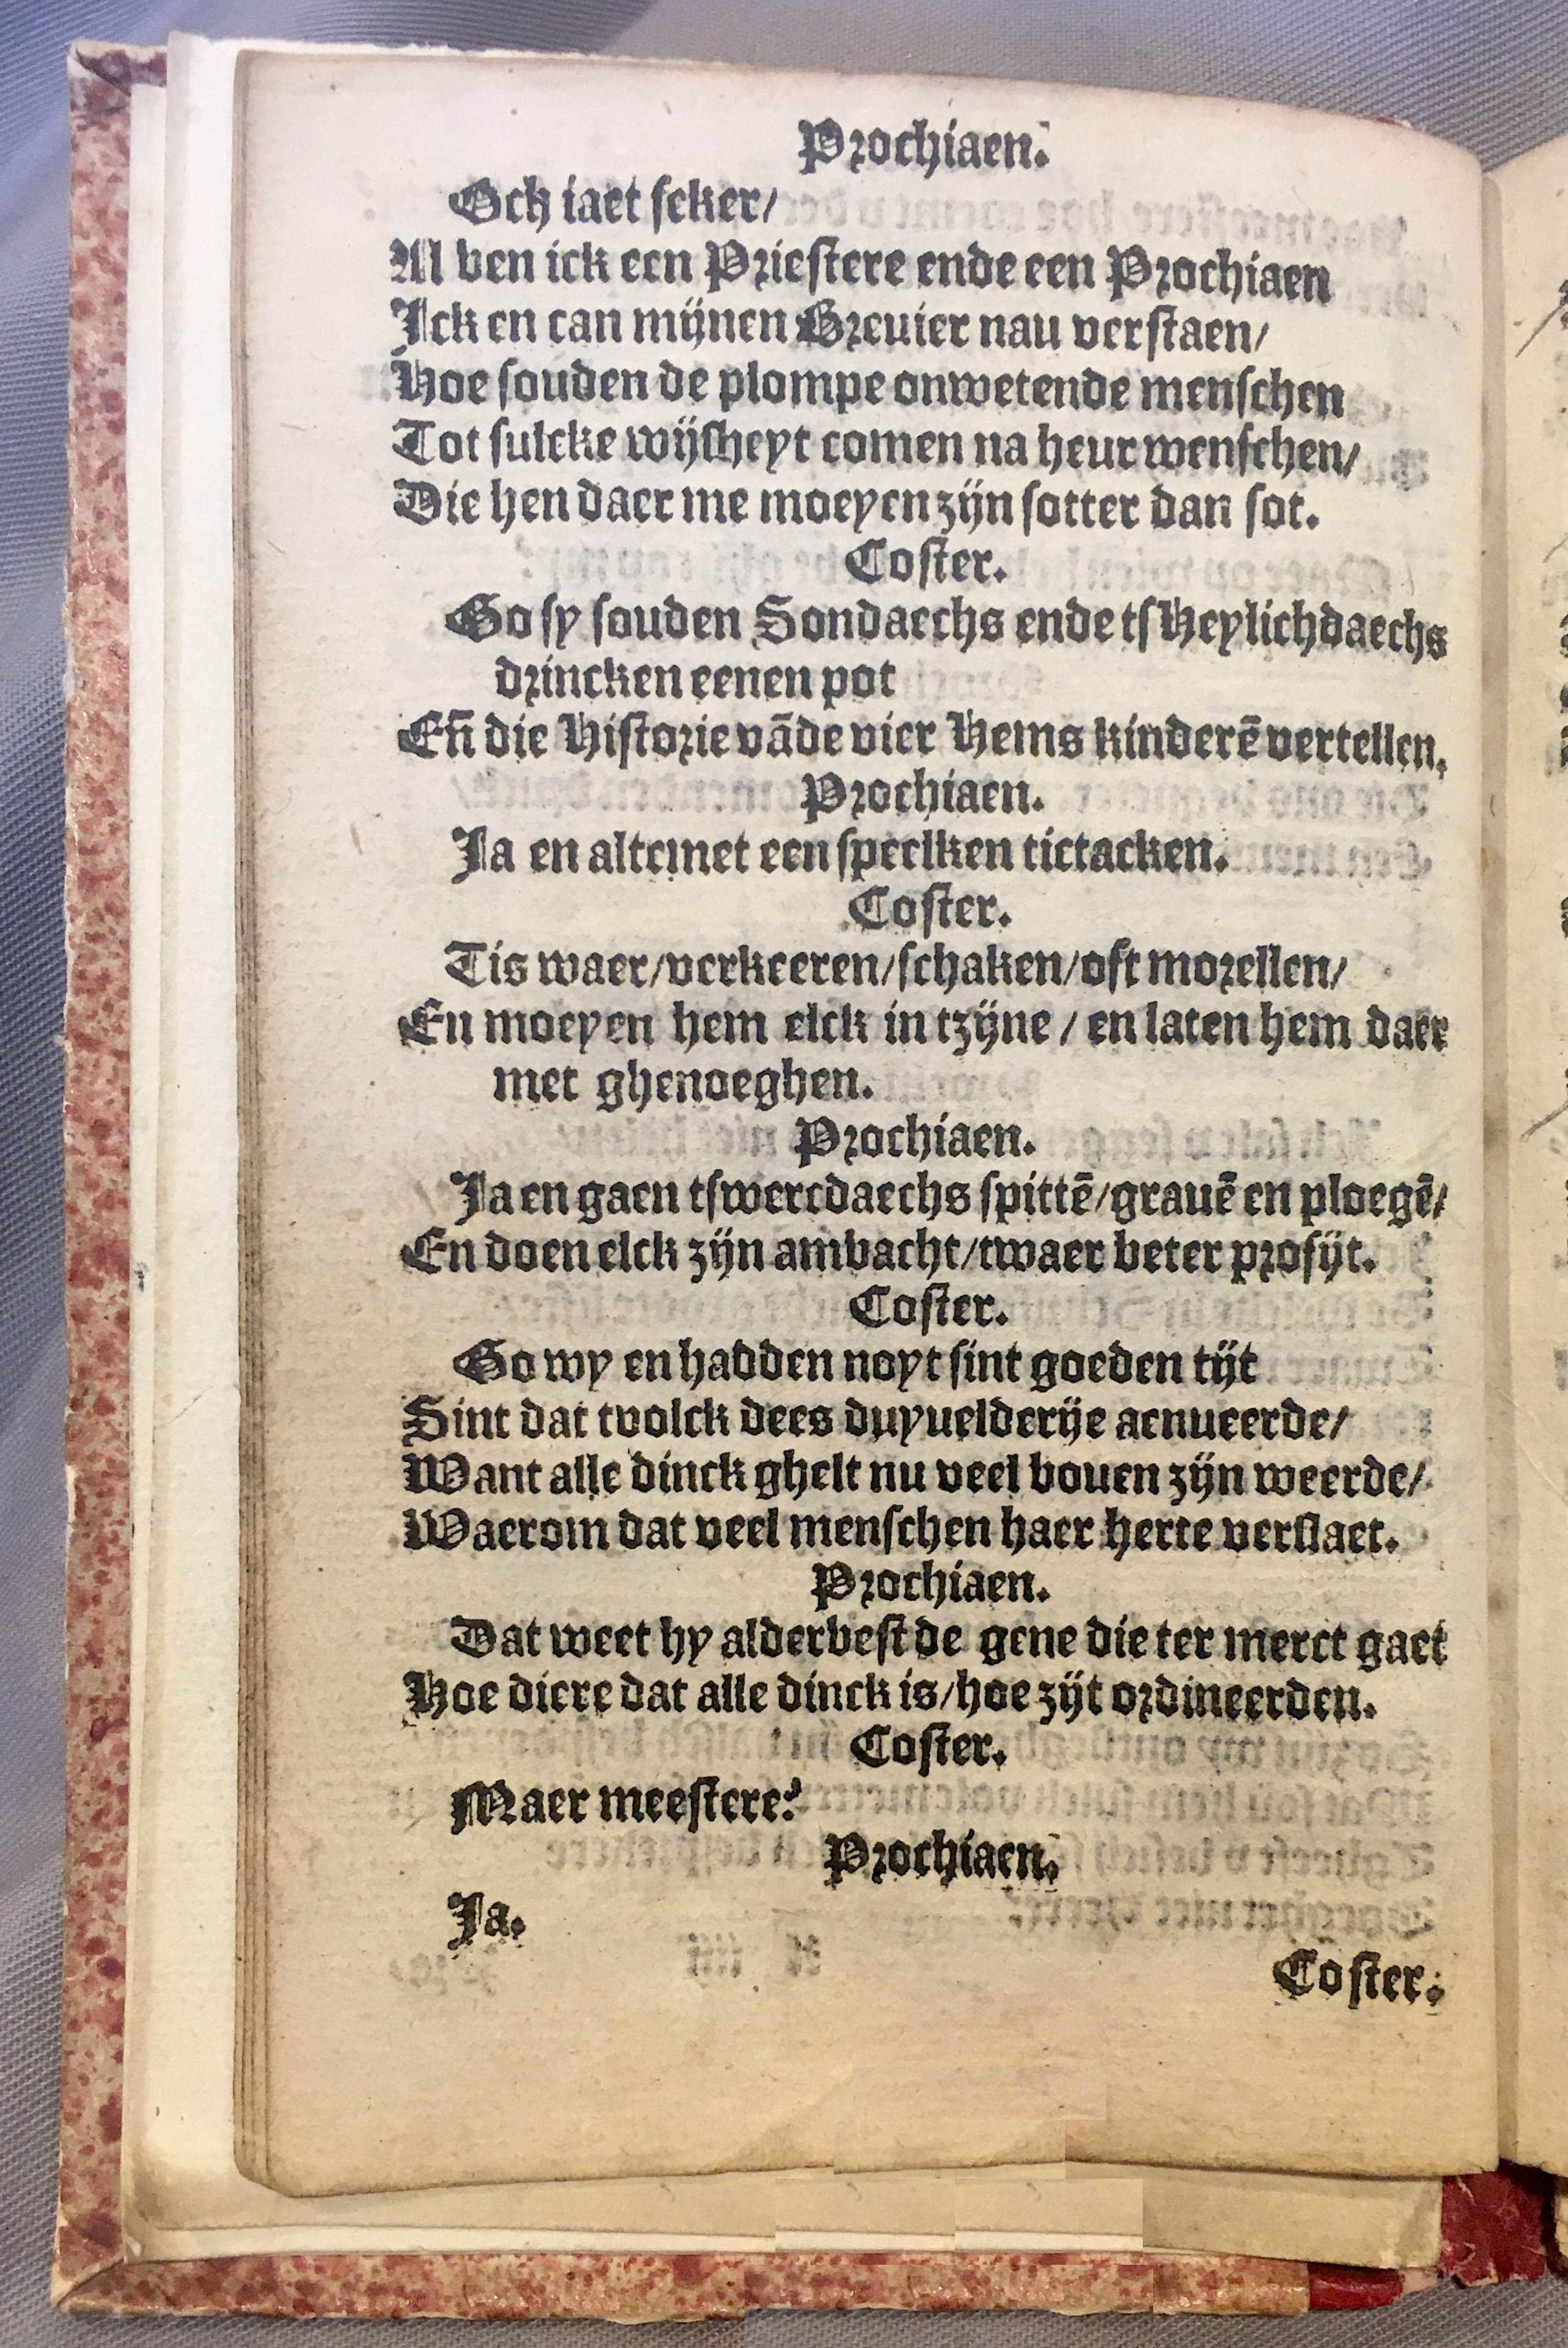 Prochiaen.
Och iaet seker/
Al ben ick een Priestere ende een Prochiaen
Ick en can mijnen Breuier nau verstaen/
Hoe souden de plompe onwetende menschen
Tot sulcke wijsheyt comen na heur wenschen/
Die hen daer me moeyen zijn sotter dan sot.
Coster.
Go sy souden Sondaechs ende tsHeylichdaechs
drincken eenen pot
Eñ die Historie vāde vier Hems kinderē vertellen.
Prochiaen.
Ja en altemet een speelken tictacken.
Coster.
Tis waer/verkeeren/schaken/oft morellen/
En moeyen hem elck in tzijne / en laten hem daer
met ghenoeghen.
Prochiaen.
Ja en gaen tswercdaechs spittē/grauē en ploegē/
En doen elck zijn ambacht/twaer beter profijt.
Coster.
Go wy en hadden noyt sint goeden tijt
Sint dat tvolck dees duyuelderije aenueerde/
Want alle dinck ghelt nu veel bouen zijn weerde/
Waerom dat veel menschen haer herte verslaet.
Prochiaen.
Dat weet hy alderbest de gene die ter merct gaet
Hoe diere dat alle dinck is/hoe zijt ordineerden.
Coster.
Maer meestere?
Prochiaen.
Ja.
Coster.